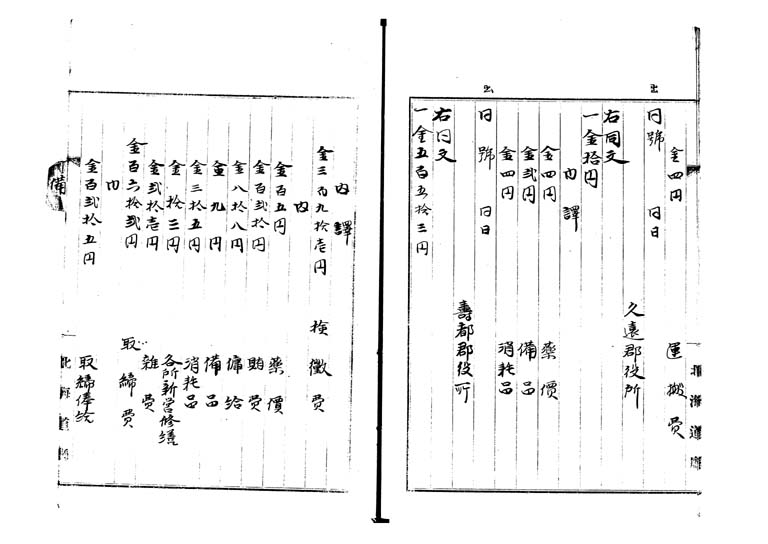 金四円 運搬費
同號 同日
久遠郡役所
右同文
一金拾円
内譯
金四円 藥價
金弐円 備品
金四円 消耗品
同號 同日
壽都郡役所
右同文
一金五百五拾三円
内譯
金三百九拾壱円 検黴費
内
金百五円 藥價
金百弐拾円 賄費
金八拾八円 傭給
金九円 備品
金三拾五円 消耗品
金拾三円 各所新営修繕
金弐拾壱円 雜費
金百六拾弐円 取締費
内
金百弐拾五円 取締俸給
備
北海道廳